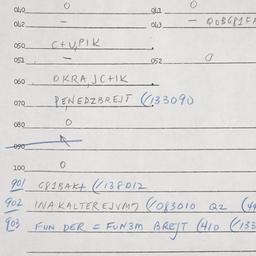 040 0 041 0
042 – 043 –
050 C+UPIK
051 – 052 0
060 OKRAJC+IK
070 PENEDZBREJT (/133090
080 0
090
100 0
901 C81BAK+ (/138012
902 INAKALTEREJVM7 (/083010 Q2
903 FUN DER = FUN3M BREJT (410 (/133